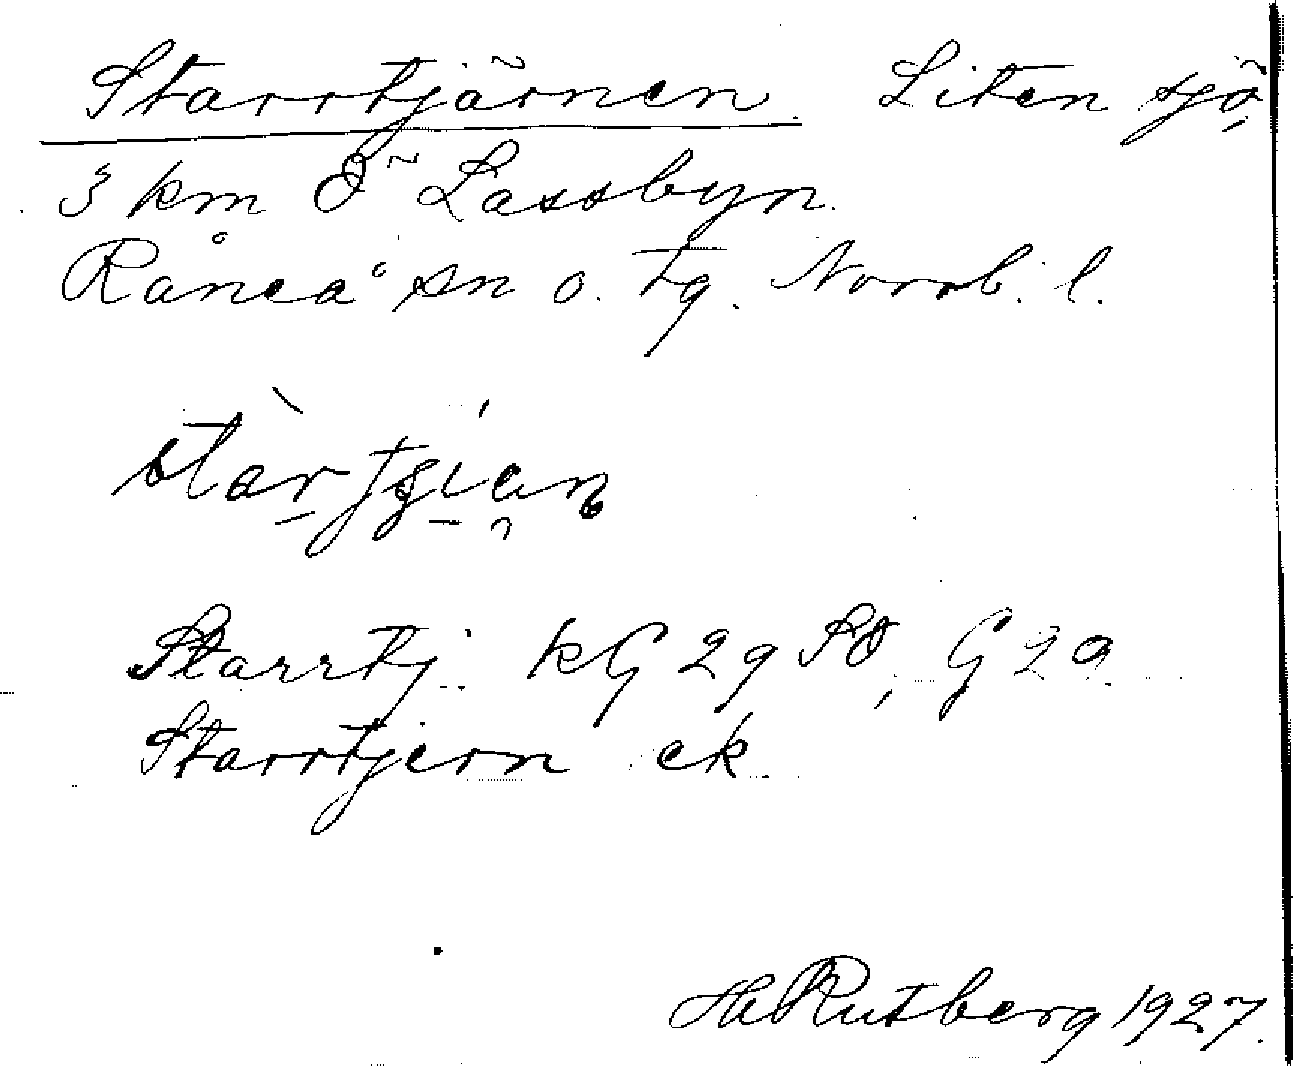 Starrtjärnen Liten sjö
3 km Ö Lassbyn.
Råneå sn o. tg. Norrb. l.
Starrtj. kG 29 SO, G 29
Starrtjern ek
H Rutberg 1927.